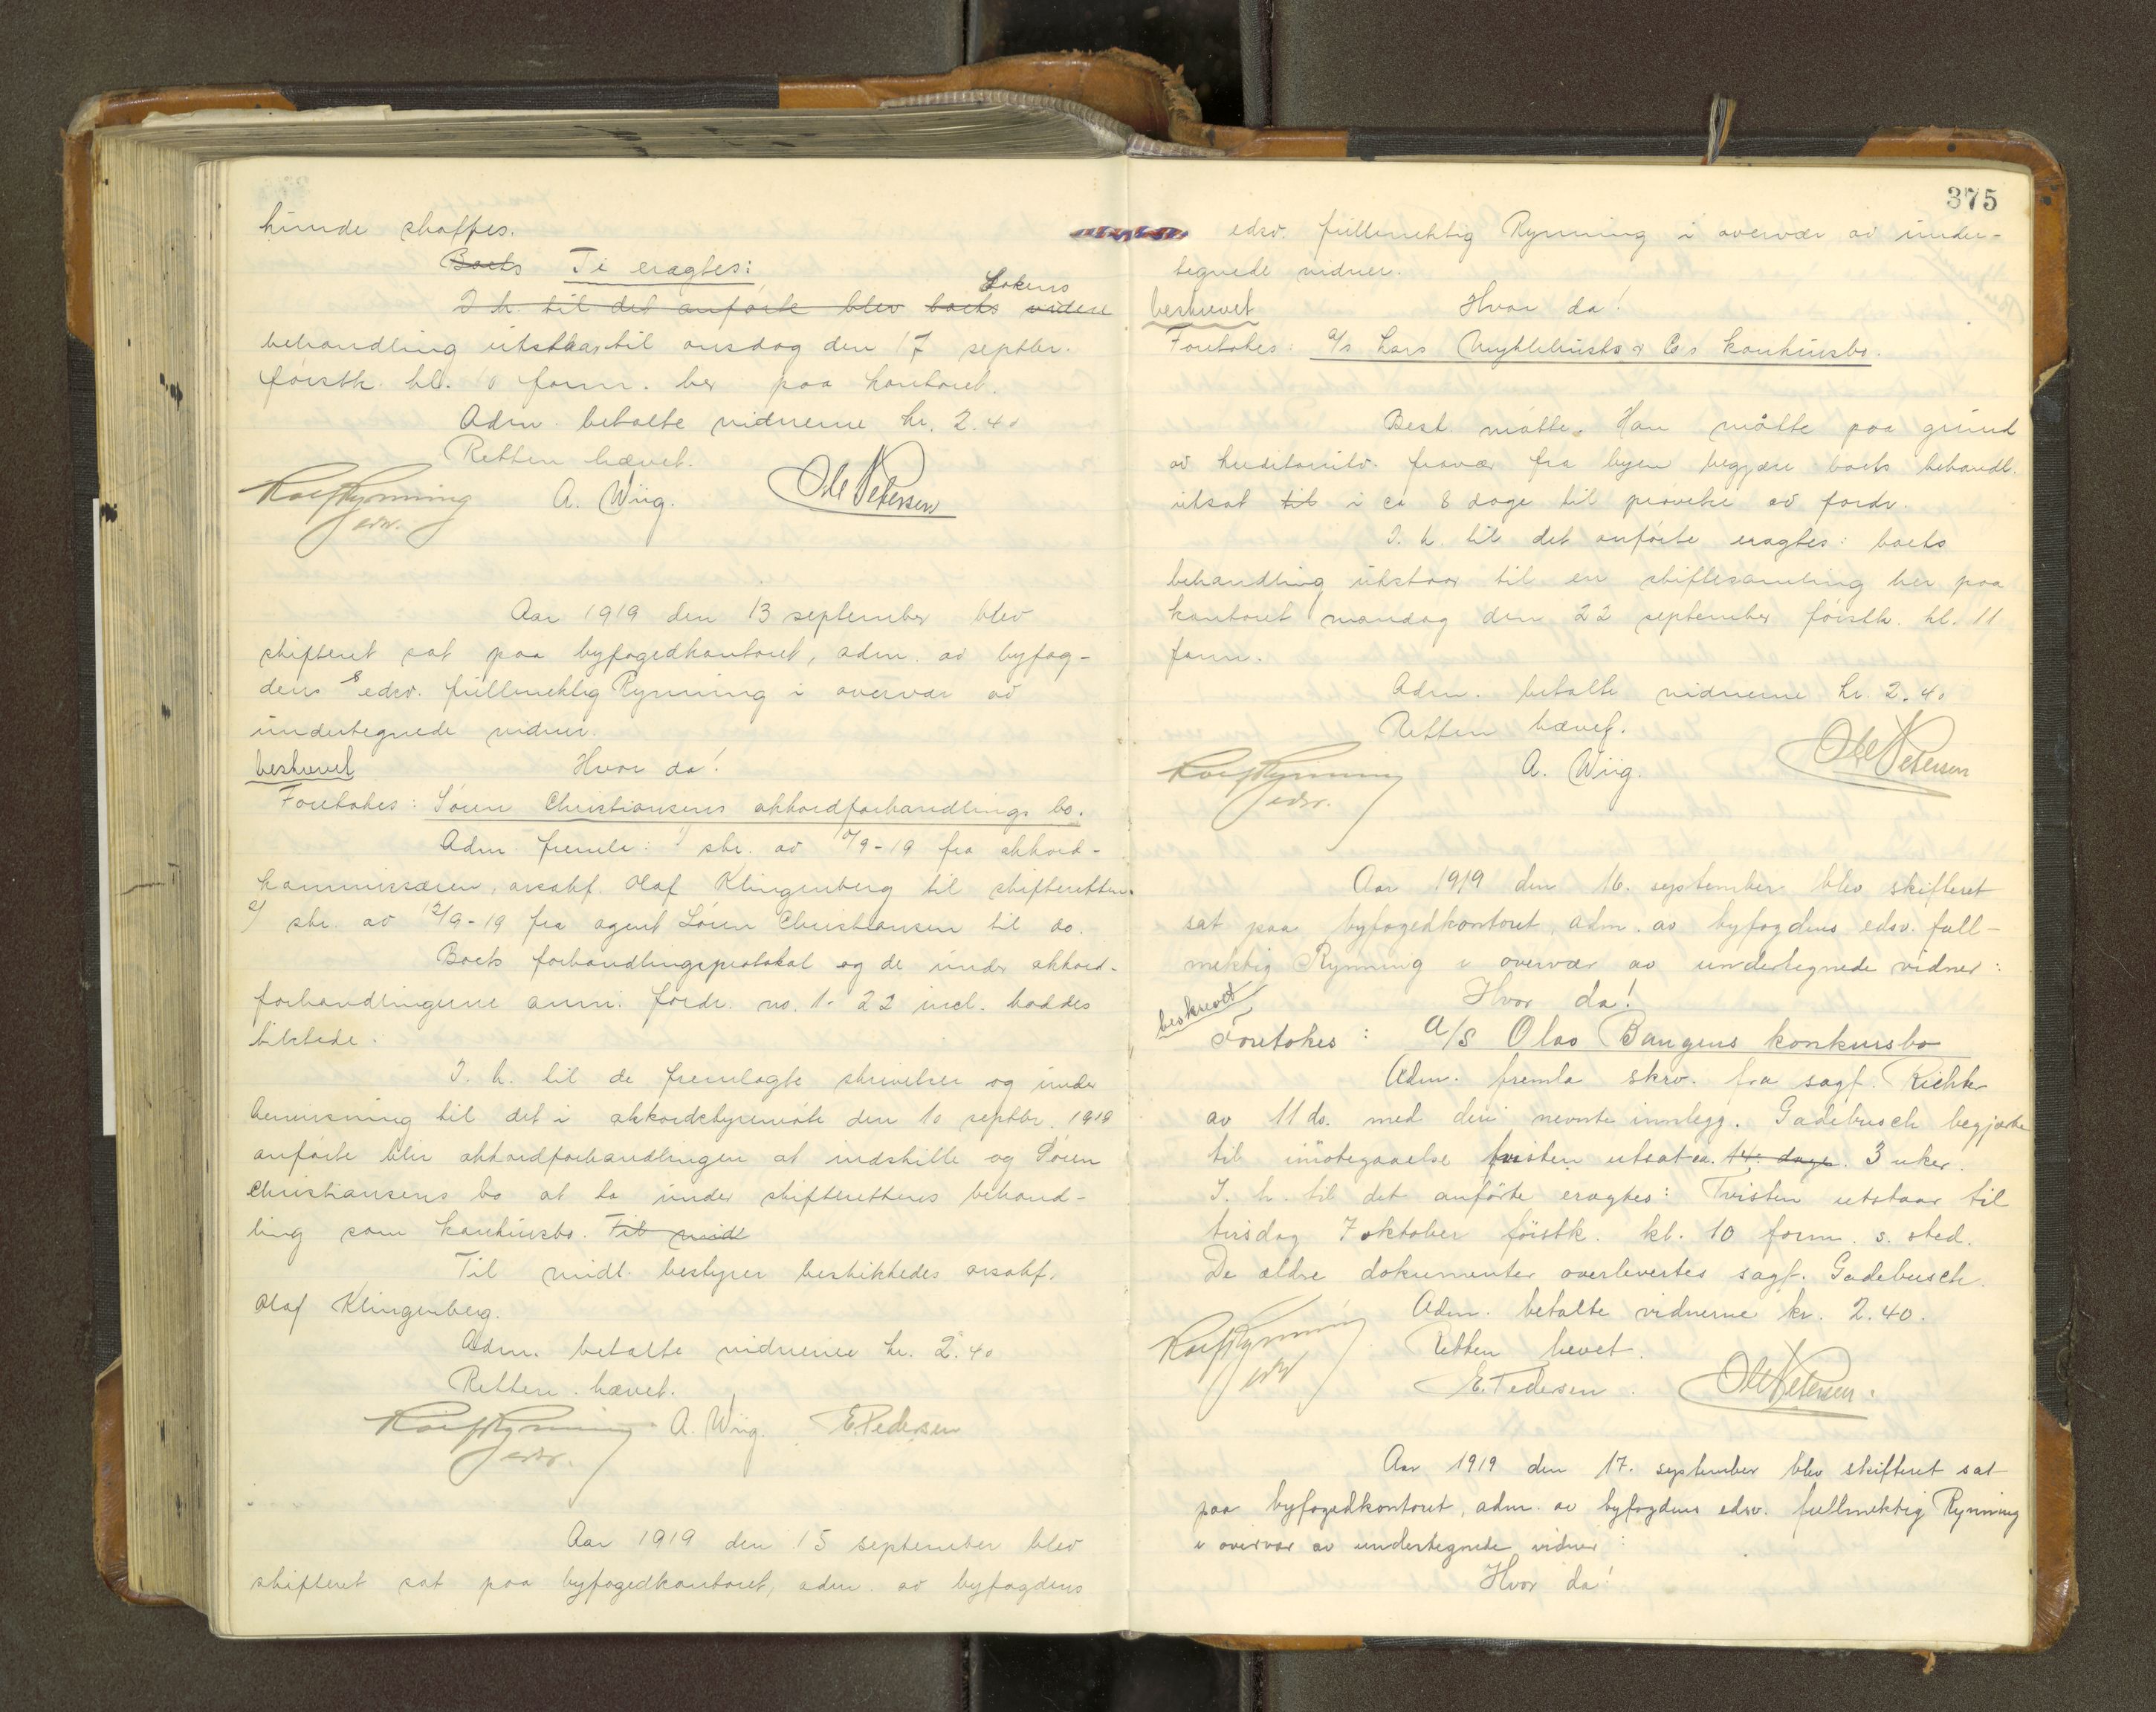 kunde skaffes.
Boets Ti eragtes:
I h. til det anførte blev boets videre Sakens
behandling utstaar til onsdag den 17 septbr.
førstk. kl. 10 form. her paa kontoret.
Adm. betalte vidnerne kr. 2.40
Retten hævet.
Rolf Rynning A. Wiig. Ole Petersen
edsv.
Aar 1919 den 13 september blev
skifteret sat paa byfogedkontoret, adm. av byfog-
dens edsv. fullmektig Rynning i overvær av
undertegnede vidner.
beskrevet Hvor da!
Foretokes: Søren Christiansens akkordforhandlings bo.
Adm. fremla: 1/ skr. av /9-19 fra akkord-
kommissæren, orsakf. Olaf Klingenberg til skifteretten.
2/ skr. av 12/9-19 fra agent Søren Christiansen til do.
Boets forhandlingsprotokol og de under akkord-
forhandlingerne anm. fordr. no. 1-22 incl. haddes
tilstede.
I. h. til de fremlagte skrivelser og under
henvisning til det i akkordstyremøte den 10 septbr. 1919
anførte blir akkordforhandlingen at indstille og Søren
Christiansens bo at ta under skifterettens behand-
ling som konkursbo. Til midl
Til midl. bestyrer beskikkedes orsakf.
Olaf Klingenberg.
Adm. betalte vidnerne kr. 2.40
Retten hævet.
Rolf Rynning A. Wiig. E. Pedersen
edsv.
Aar 1919 den 15 september blev
skifteret sat paa byfogedkontoret, adm. av byfogdens
375
edsv. fullmektig Rynning i overvær av under-
tegnede vidner.
beskrevet Hvor da!
Foretokes: A/s Lars & Co s konkursbo.
Best. møtte. Han måtte paa grund
av kreditorutv. fravær fra byen begjære boets behandl.
utsat til i ca 8 dage til prøvelse av fordr.
I. h. til det anførte eragtes: boets
behandling utstaar til en skiftesamling her paa
kontoret mandag den 22 september førstk. kl. 11
form.
Adm. betalte vidnerne kr. 2.40
Retten hævet.
Rolf Rynning A. Wiig. Ole Petersen
edsv.
Aar 1919 den 16. september blev skifteret
sat paa byfogedkontoret, adm. av byfogdens edsv. full-
mektig Rynning i overvær av undertegnede vidner:
Hvor da!
beskrevet
Foretokes: A/S Olao Bangens konkursbo
Adm. fremla skrv. fra sagf. Richter
av 11 ds. med deri nevnte innlegg. Gadebusch begjærte
til imøtegaaelse tvisten utsat ca. 14. dage. 3 uker.
I. h. til det anførte eragtes: Tvisten utstaar til
tirsdag 7 oktober førstk. kl. 10 form. s. sted.
De ældre dokumenter overlevertes sagf. Gadebusch.
Adm. betalte vidnerne kr. 2.40.
Retten hevet.
Rolf Rynning E. Pedersen. Ole Petersen.
edsv
Aar 1919 den 17. september blev skifteret sat
paa byfogedkontoret, adm. av byfogdens edsv. fullmektig Rynning
i overvær av undertegnede vidner:
Hvor da!